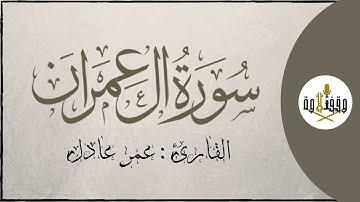 سُورَةُ آلِ عِمْرَان
القارئ : عمر عادل